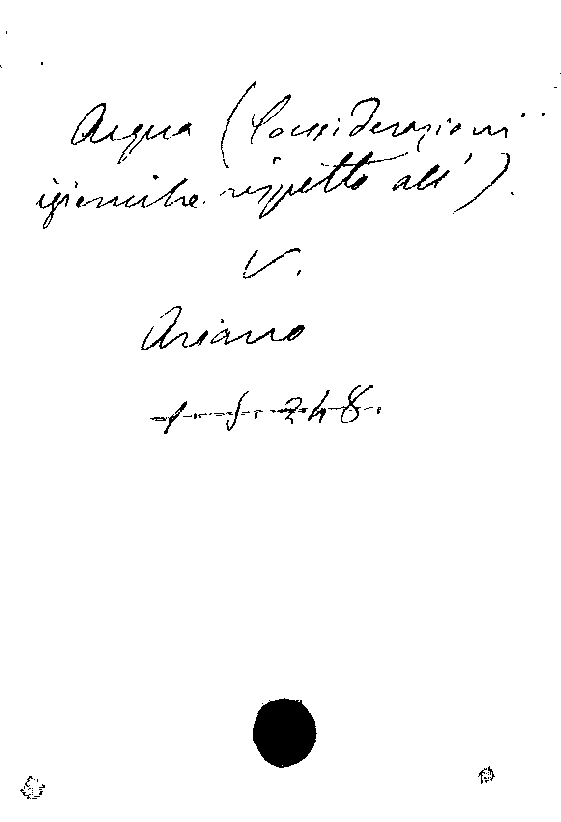 Acqua (Considerazioni
igieniche rispetto all').
V.
Ariano
f. f. 248.